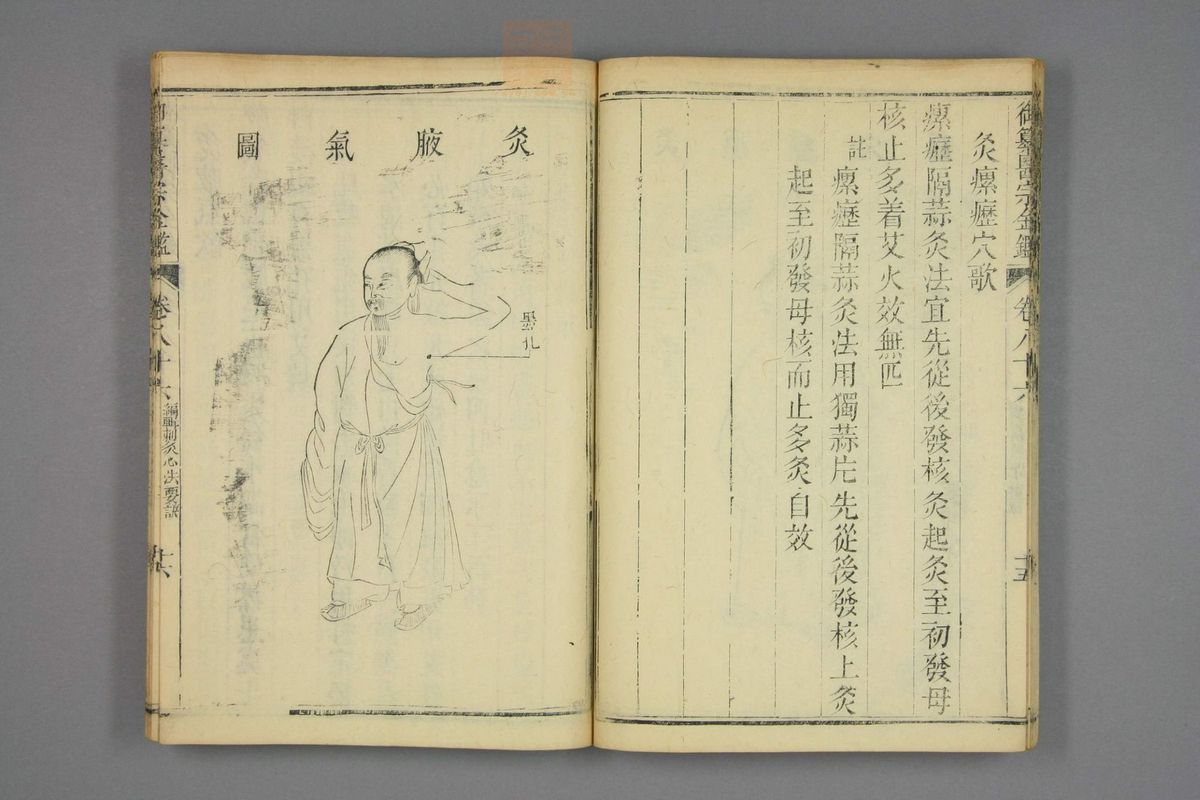 御纂醫宗金鑑 卷八十六
十五
灸瘰癧穴歌
瘰癧隔蒜灸法宜先從後發核灸起灸至初發母
核止多着艾火效無匹
註瘰癧隔蒜灸法用獨蒜片先從後發核上灸
起至初發母核而止多灸自效
灸腋氣圖
墨孔
御纂醫宗金鑑 卷八十六 編輯刺灸心法要訣